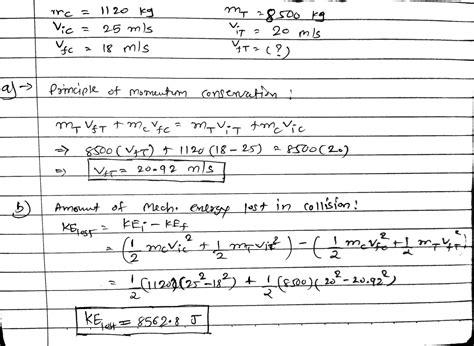 mc = 1120 kg    mT = 8500 kg
Vic = 25 m/s    ViT = 20 m/s
Vfc = 18 m/s    VfT = (?)
a) → Principle of momentum conservation :
mT VfT + mc Vfc = mT ViT + mc Vic
⇒ 8500 (VfT) + 1120 (18 - 25) = 8500 (20)
⇒ VfT = 20.92 m/s
b) Amount of Mech. energy lost in collision :
KElost = KEi - KEf
= (1/2 mc Vic² + 1/2 mT ViT²) - (1/2 mc Vfc² + 1/2 mT VfT²)
= 1/2 (1120) (25² - 18²) + 1/2 (8500) (20² - 20.92²)
KElost = 8562.8 J